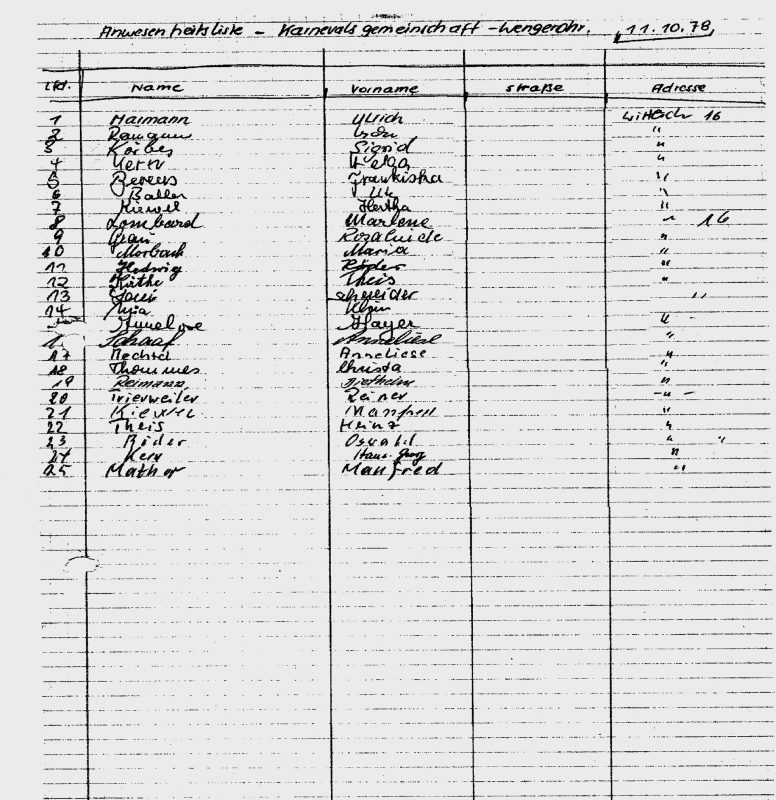 Anwesenheitsliste - Karnevalsgemeinschaft - Wengerohr. 11.10.78
Lfd. Name Vorname Straße Adresse
1 Maimann Ulrich Wittlich 16
2 "
3 Körbes Sigrid "
4 Kern Helga "
5 Berens Franziska "
6 Balter "
7 Kiewel Hertha "
8 Lombard Marlene " 16
9 "
10 Morbach Maria "
11 Hedwig Röder "
12 Käthe Theis "
13 Schneider "
14 Klein
Annelore Mayer "
1. Schaaf Anneliese "
17 Mechtel Anneliese "
18 Thommes Christa "
19 Reimann "
20 Trierweiler Reiner - " -
21 Kiewel Manfred "
22 Theis Heinz "
23 Röder Oswald " "
24 Kern Hans-Georg "
25 Mathar Manfred "